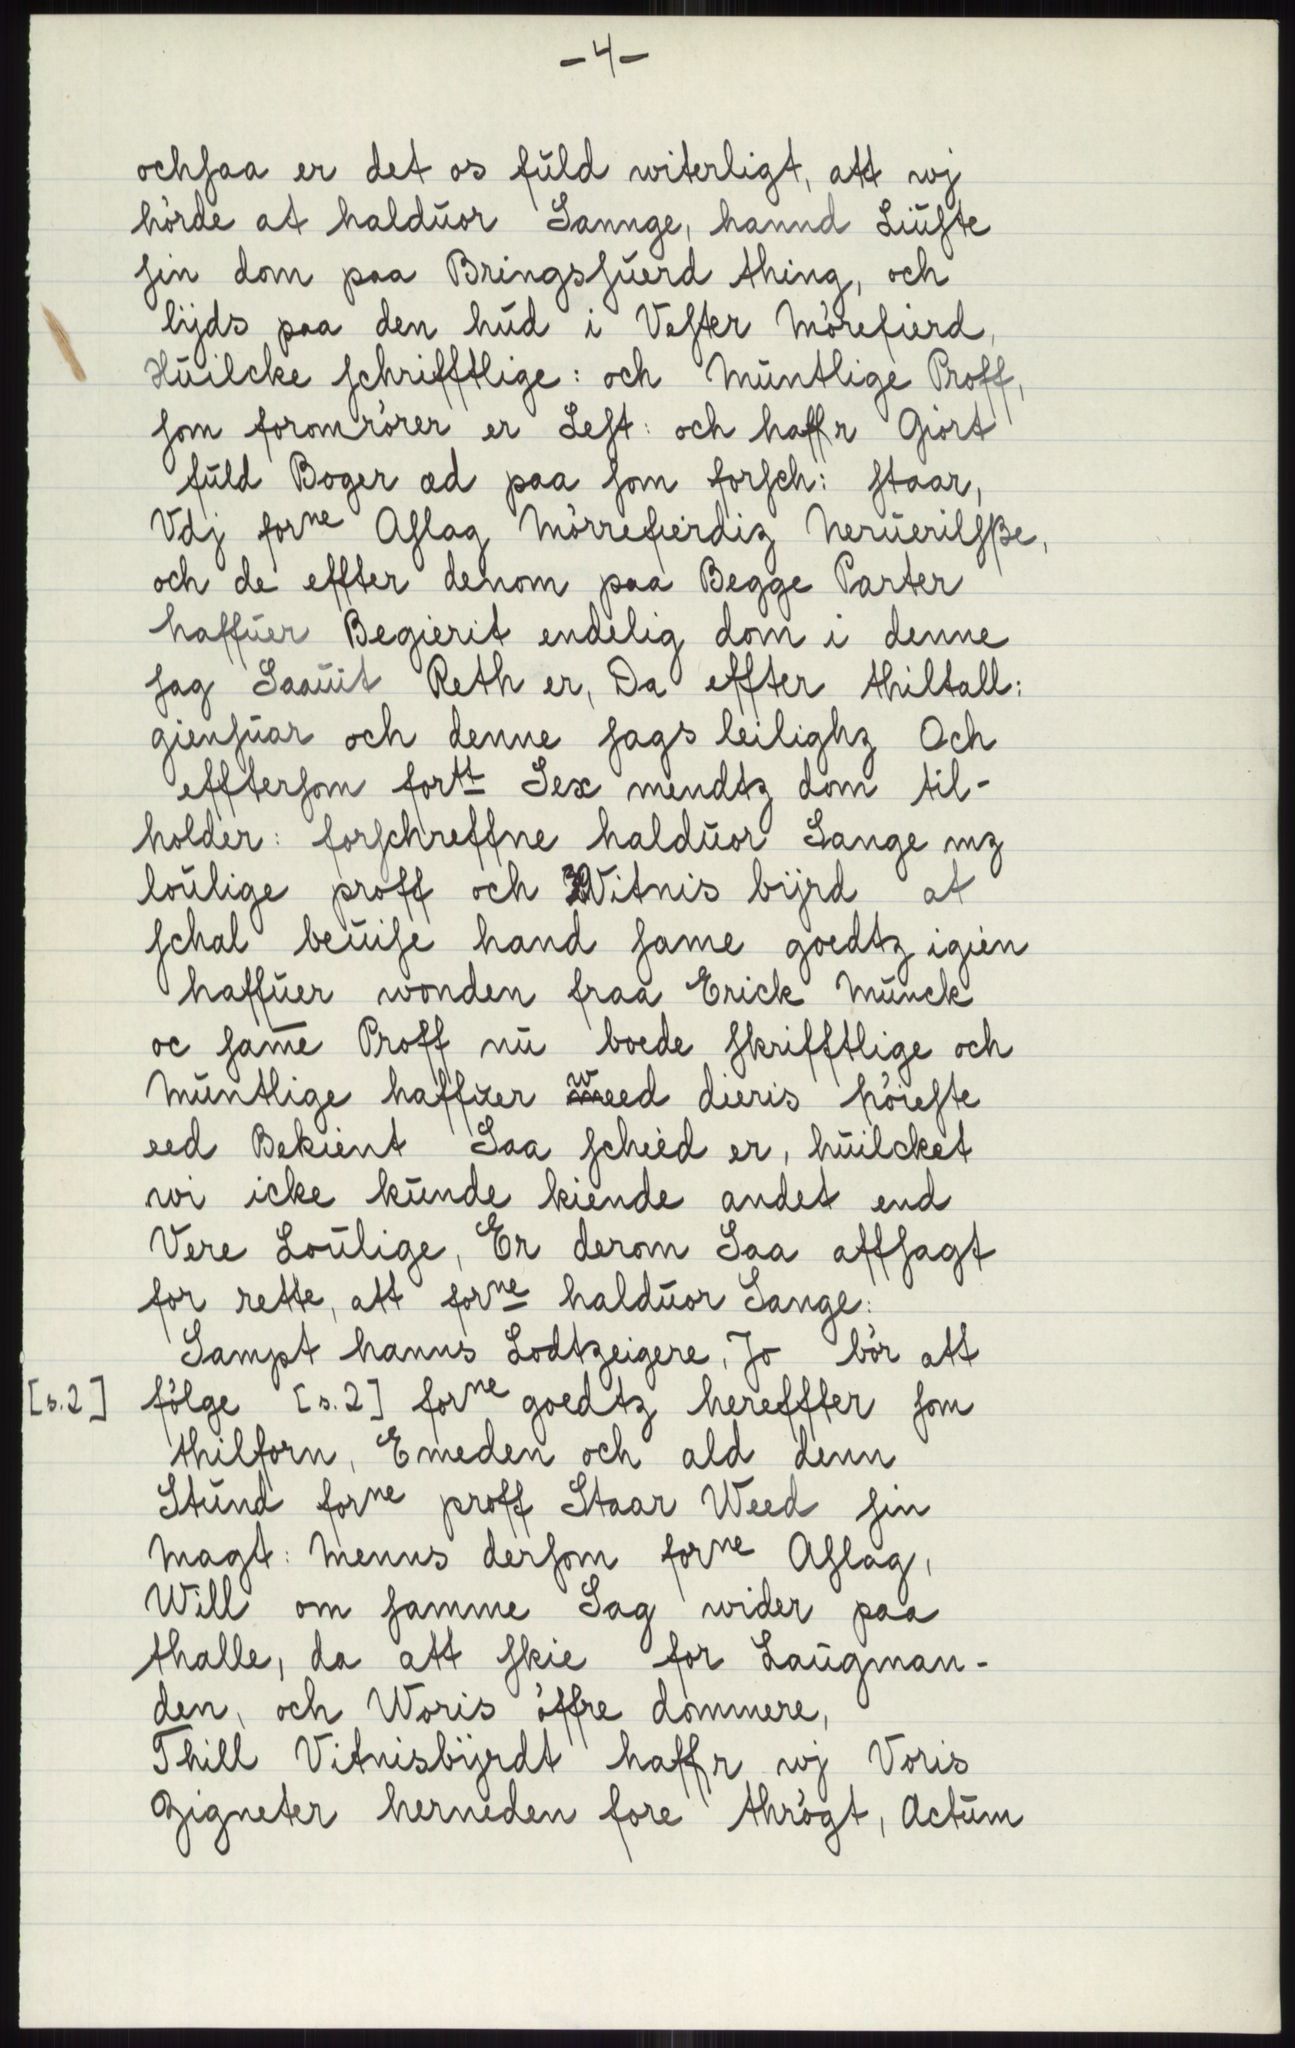 -4-
ochsaa er det os fuld witerligt, att wj
hörde at halduor Sannge, hannd Liuste
sin dom paa Bringssuerd thing, och
lijds paa den hud i Vester Mörefierd,
Huilcke schrifftlige: och Muntlige Proff,
som foromrörer er Lest: och haffr Giort
fuld Boger æd paa som forsch: staar,
Vdj forne Aslag Mörrefierdiz Neruerilsße,
och de effter denom paa Begge Parter
haffuer Begierit endelig dom i denne
sag Saauit Reth er, Da effter thiltall:
giensuar och denne sags leilighz Och
efftersom fortt Sex mendtz dom til-
holder: forschreffne halduor Sange mz
loulige proff och Witnis bijrd at
schal beuise hand same goedtz igien
haffuer wonden fraa Erick Munck
oc same Proff nu boede skrifftlige och
Muntlige haffuer weed dieris höieste
eed Bekient Saa scheed er, huilcket
wi icke kunde kiende andet end
Vere Loulige, Er derom Saa affsagt
for rette, att forne halduor Sange:
Sampt hanns Lodtzeigere, Jo bör att
[s.2] fölge [s.2] forne goedtz hereffter som
thilforn, Emeden och ald denn
Stund forne proff Staar Weed sin
Magt: Menns dersom forne Aslag,
Will om samme Sag wider paa
thalle, da att skie for Laugman-
den, och Woris öffre dommere,
Thill Vitnisbijrdt haffr wj Voris
Zigneter herneden fore thrögt, Actum